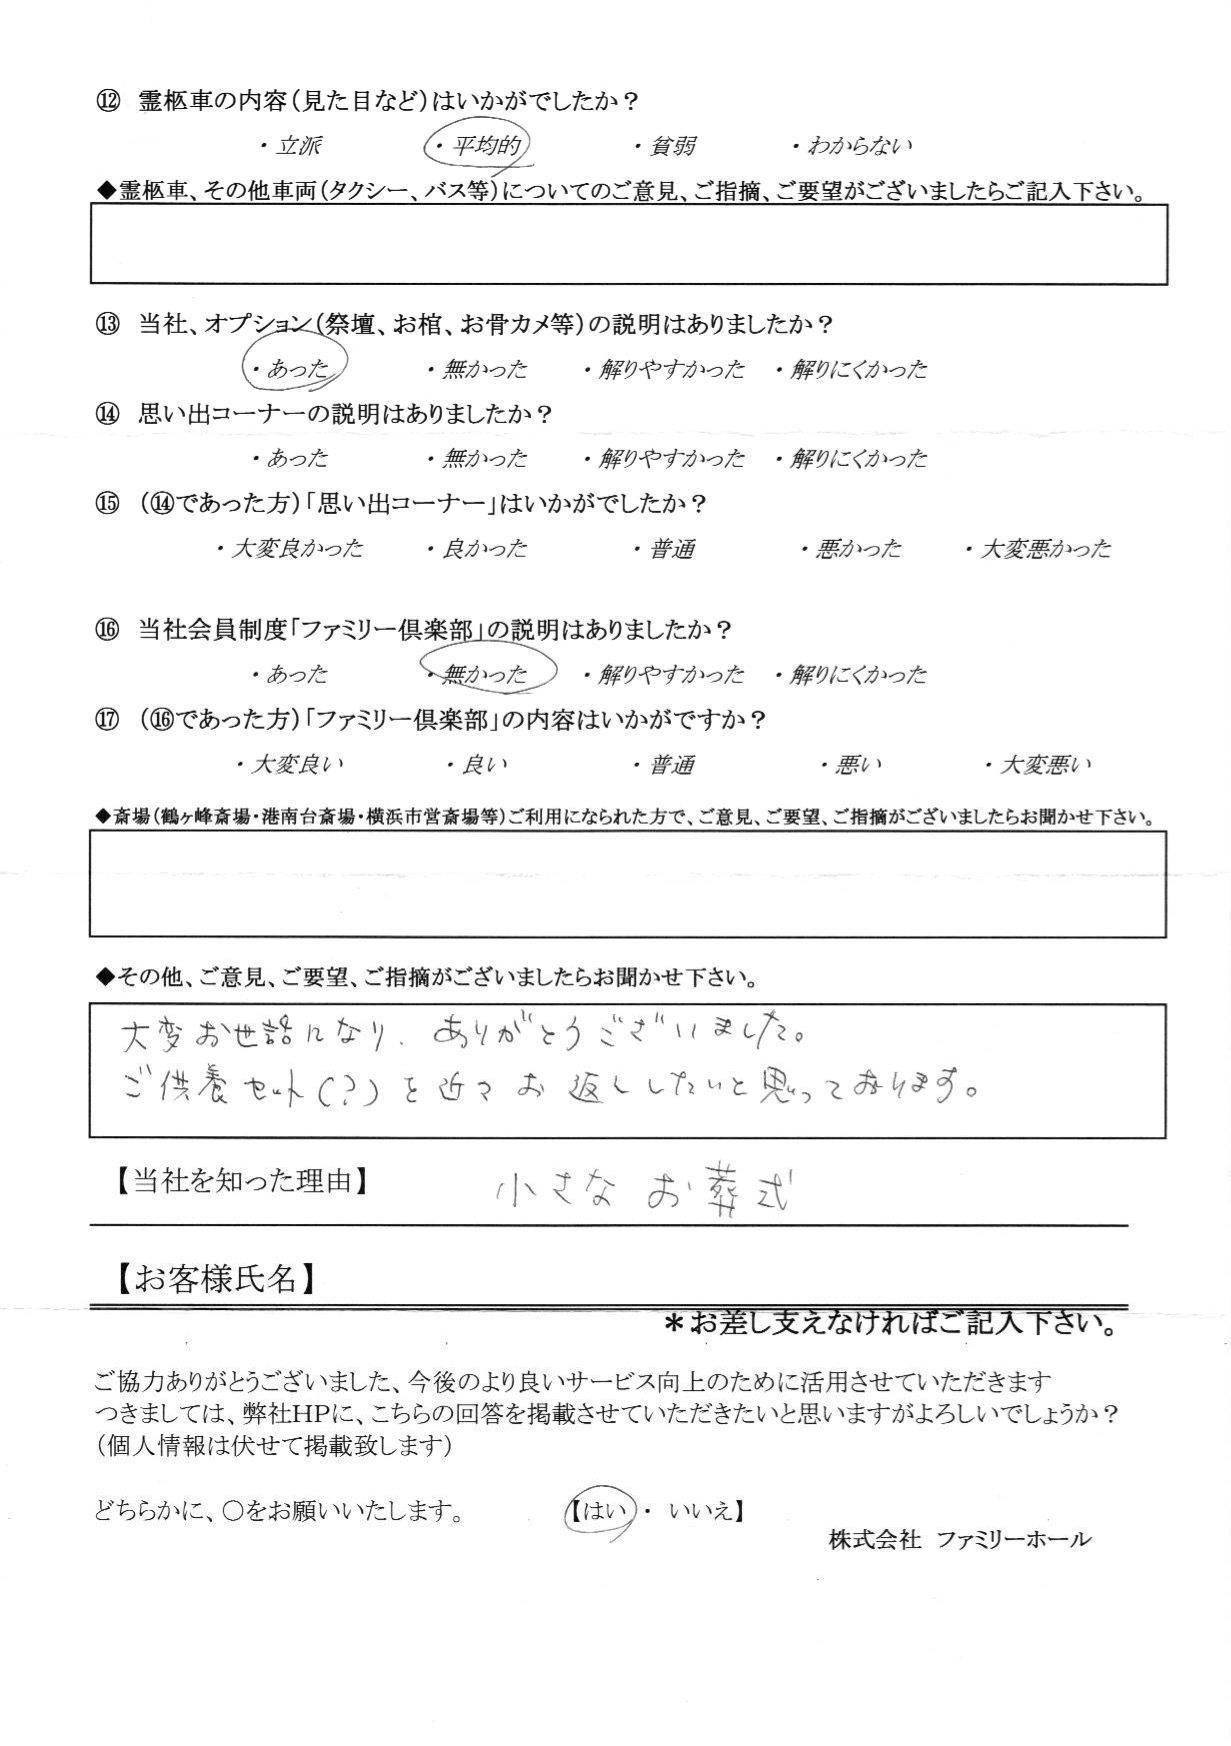 ⑫ 霊柩車の内容(見た目など)はいかがでしたか?
・立派 ・平均的 ・貧弱 ・わからない
◆霊柩車、その他車両(タクシー、バス等)についてのご意見、ご指摘、ご要望がございましたらご記入下さい。
⑬ 当社、オプション(祭壇、お棺、お骨カメ等)の説明はありましたか?
・あった ・無かった ・解りやすかった ・解りにくかった
⑭ 思い出コーナーの説明はありましたか?
・あった ・無かった ・解りやすかった ・解りにくかった
⑮ (⑭であった方)「思い出コーナー」はいかがでしたか?
・大変良かった ・良かった ・普通 ・悪かった ・大変悪かった
⑯ 当社会員制度「ファミリー倶楽部」の説明はありましたか?
・あった ・無かった ・解りやすかった ・解りにくかった
⑰ (⑯であった方)「ファミリー倶楽部」の内容はいかがですか?
・大変良い ・良い ・普通 ・悪い ・大変悪い
◆斎場(鶴ヶ峰斎場・港南台斎場・横浜市営斎場等)ご利用になられた方で、ご意見、ご要望、ご指摘がございましたらお聞かせ下さい。
◆その他、ご意見、ご要望、ご指摘がございましたらお聞かせ下さい。
大変お世話になり、ありがとうございました。
ご供養セット(?)を近々お返ししたいと思っております。
【当社を知った理由】 小さなお葬式
【お客様氏名】
*お差し支えなければご記入下さい。
ご協力ありがとうございました、今後のより良いサービス向上のために活用させていただきます
つきましては、弊社HPに、こちらの回答を掲載させていただきたいと思いますがよろしいでしょうか?
(個人情報は伏せて掲載致します)
どちらかに、○をお願いいたします。 【はい・ いいえ】
株式会社 ファミリーホール